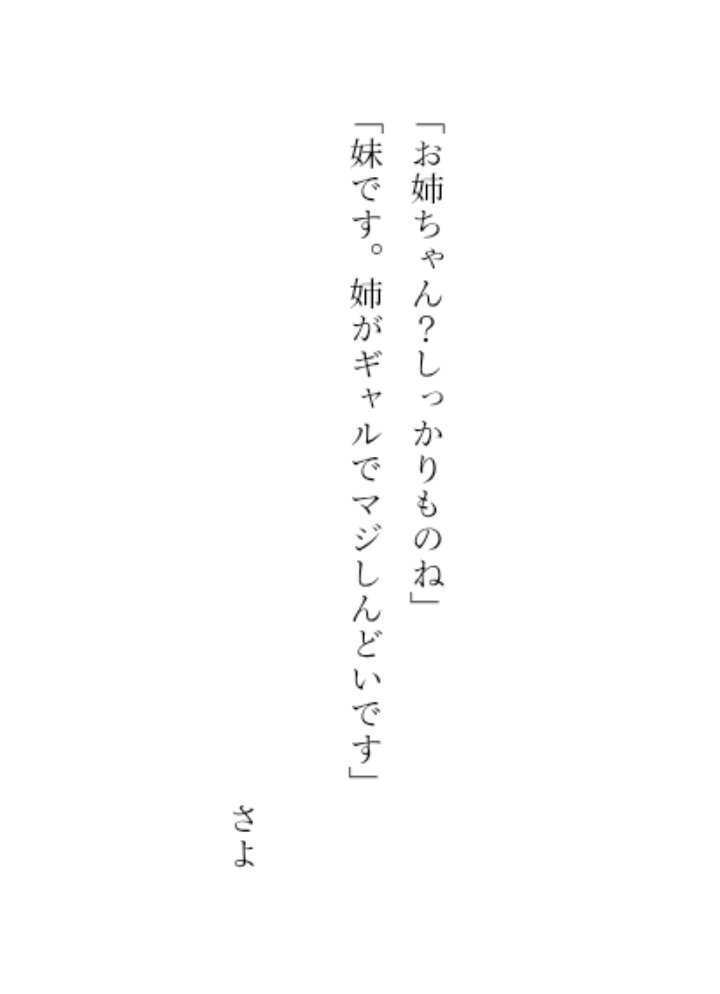 「お姉ちゃん？しっかりものね」
「妹です。姉がギャルでマジしんどいです」
さよ